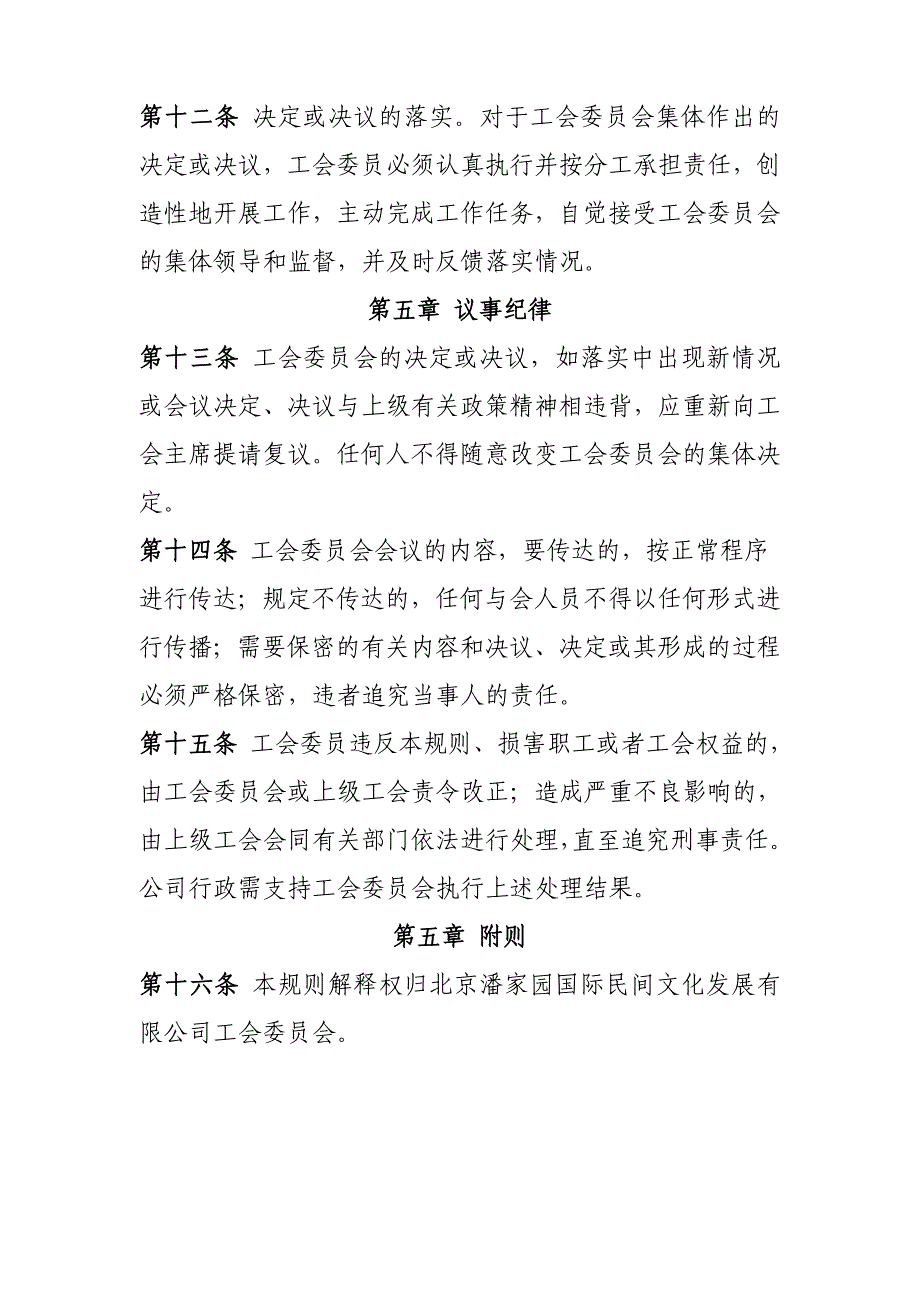 第十二条 决定或决议的落实。对于工会委员会集体作出的
决定或决议，工会委员必须认真执行并按分工承担责任，创
造性地开展工作，主动完成工作任务，自觉接受工会委员会
的集体领导和监督，并及时反馈落实情况。
第五章 议事纪律
第十三条 工会委员会的决定或决议，如落实中出现新情况
或会议决定、决议与上级有关政策精神相违背，应重新向工
会主席提请复议。任何人不得随意改变工会委员会的集体决
定。
第十四条 工会委员会会议的内容，要传达的，按正常程序
进行传达；规定不传达的，任何与会人员不得以任何形式进
行传播；需要保密的有关内容和决议、决定或其形成的过程
必须严格保密，违者追究当事人的责任。
第十五条 工会委员违反本规则、损害职工或者工会权益的，
由工会委员会或上级工会责令改正；造成严重不良影响的，
由上级工会会同有关部门依法进行处理，直至追究刑事责任。
公司行政需支持工会委员会执行上述处理结果。
第五章 附则
第十六条 本规则解释权归北京潘家园国际民间文化发展有
限公司工会委员会。